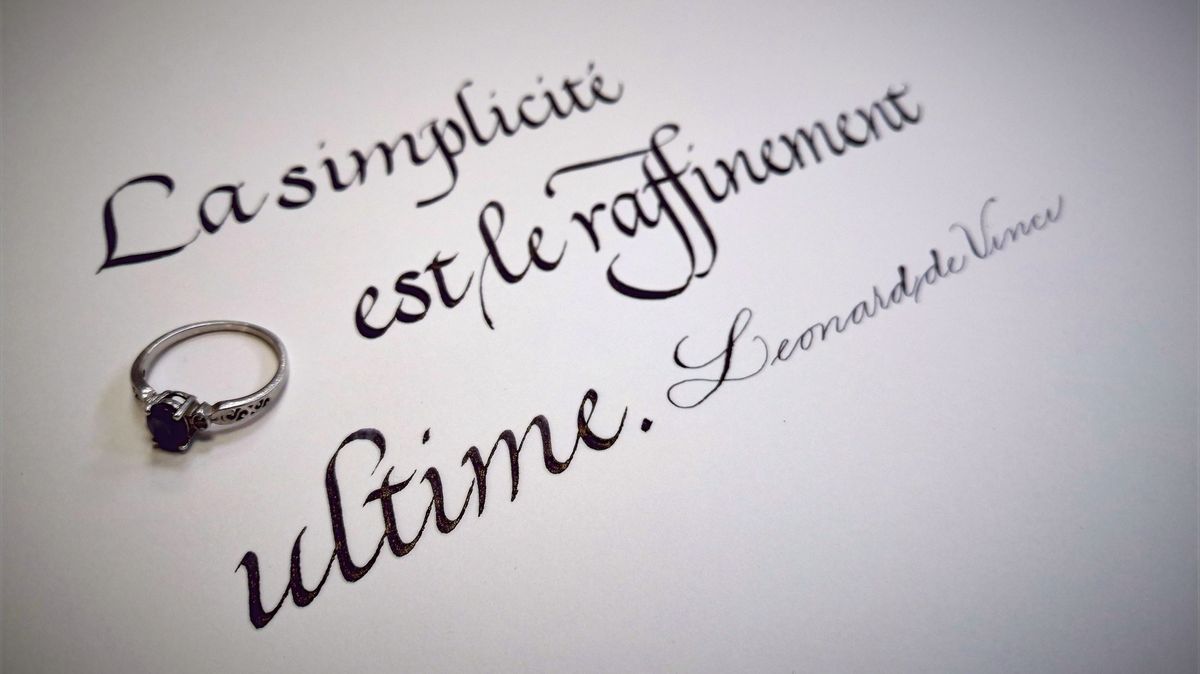 La simplicité
est le raffinement
ultime.
Leonard de Vinci